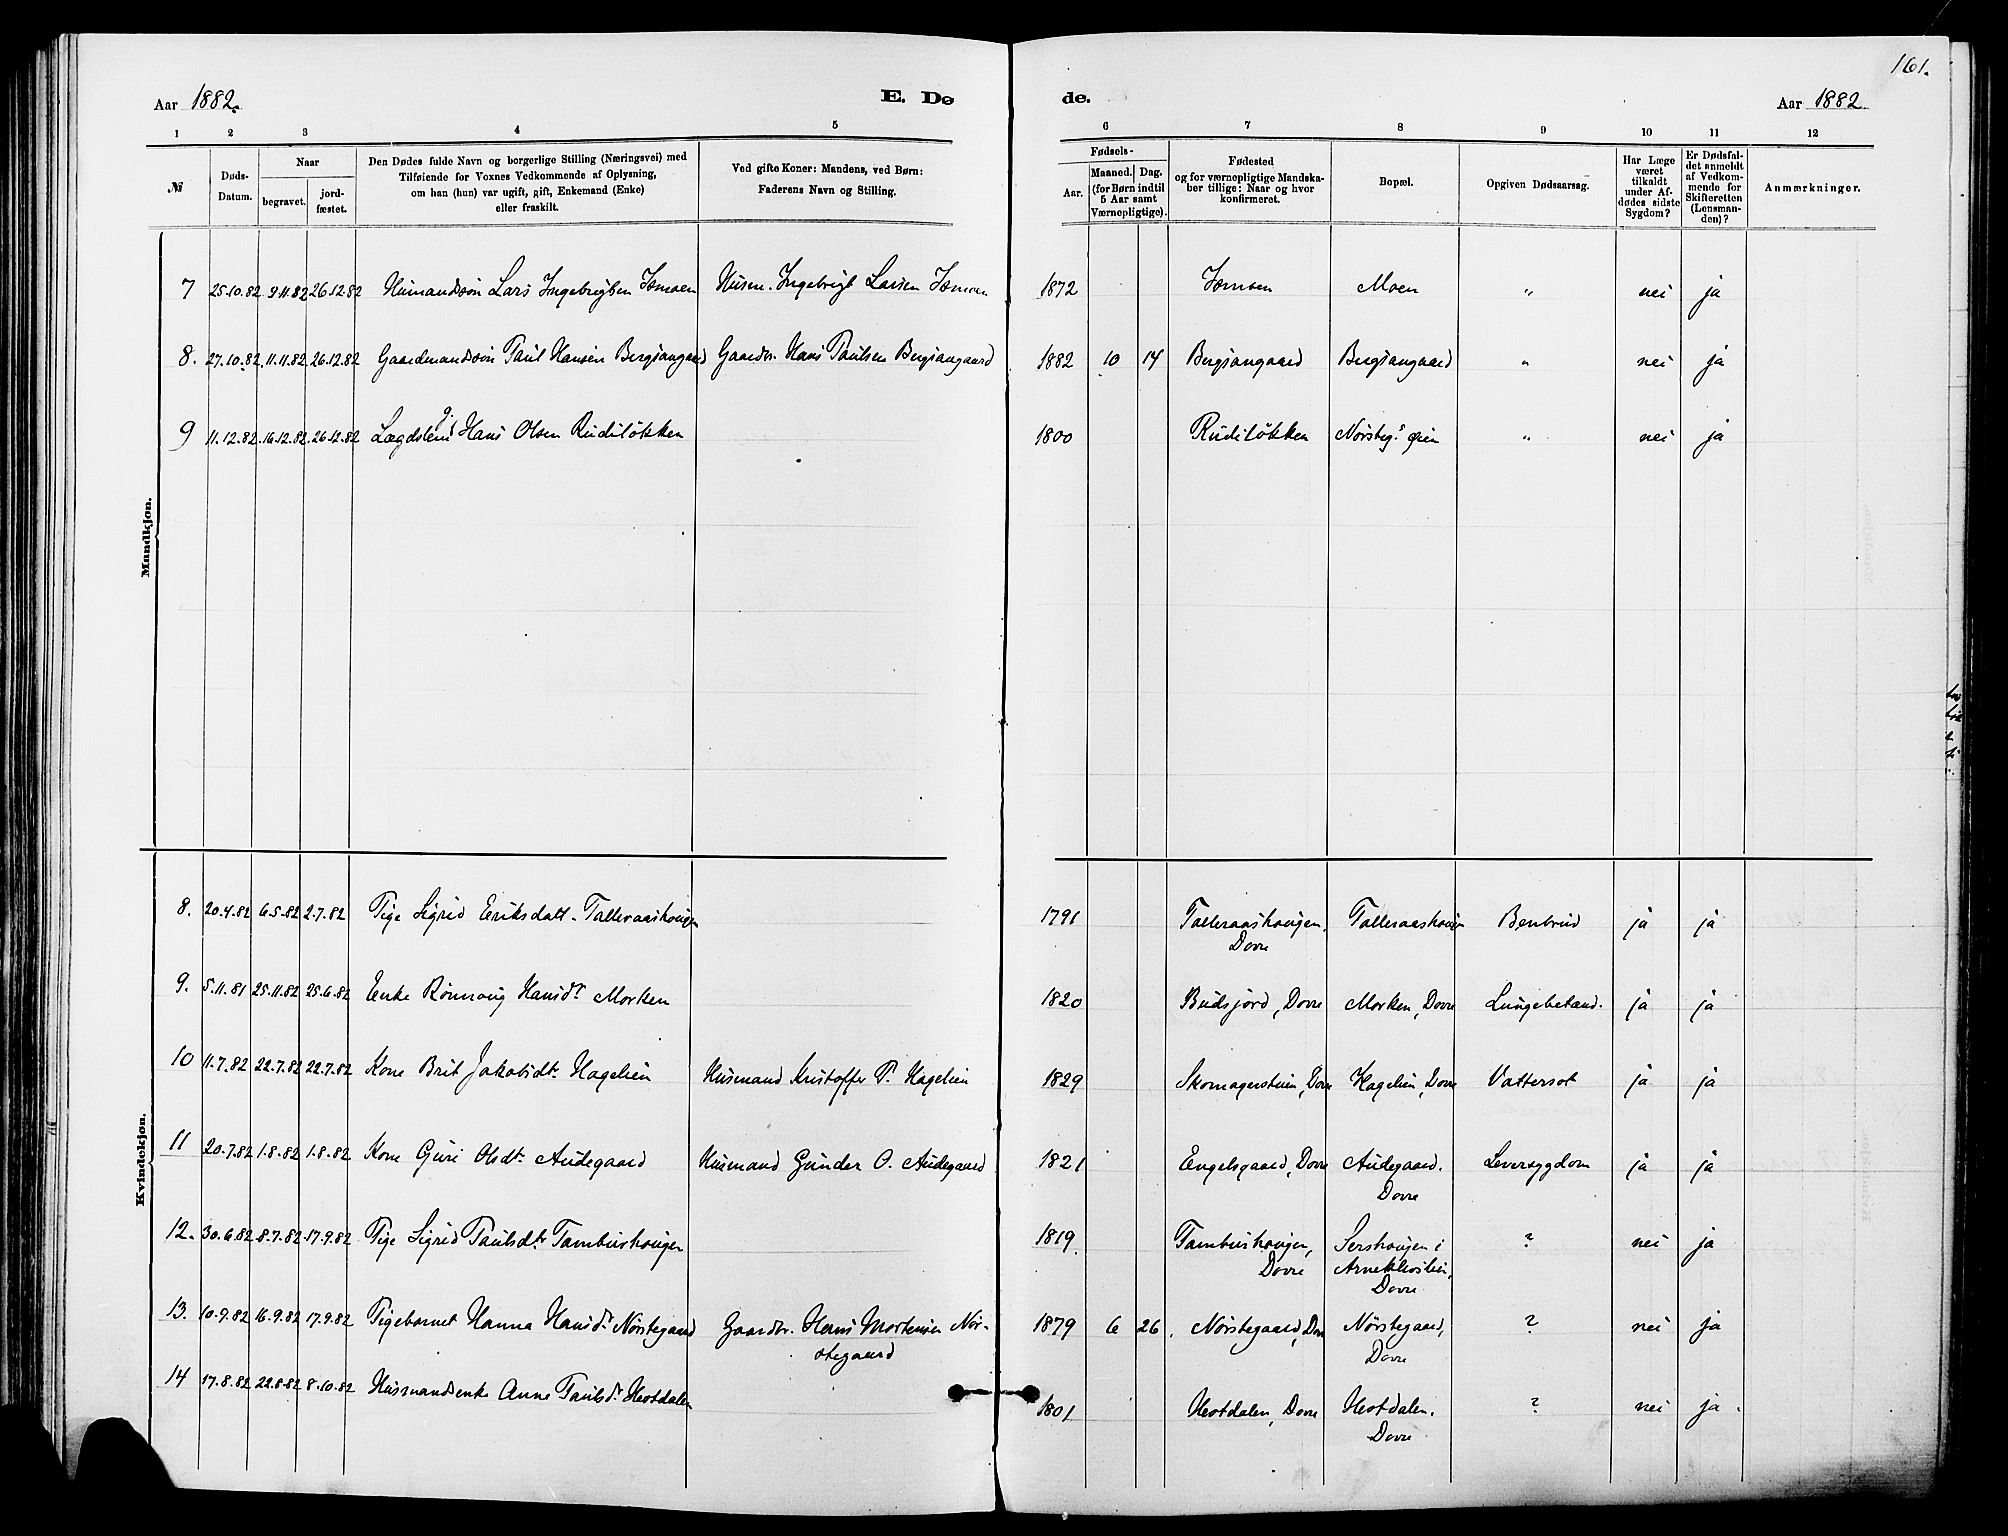 161.
Aar 1882. E. Dø de. Aar 1882
1 2 3 4 5 6 7 8 9 10 11 12
№
Døds-Datum.
Naar
begravet.
jord-fæstet.
Den Dødes fulde Navn og borgerlige Stilling (Næringsvei) med
Tilføiende for Voxnes Vedkommende af Oplysning,
om han (hun) var ugift, gift, Enkemand (Enke)
eller fraskilt.
Ved gifte Koner: Mandens, ved Børn:
Faderens Navn og Stilling.
Fødsels-
Aar.
Maaned. Dag.
(for Børn indtil
5 Aar samt
Værnepligtige).
Fødested
og for værnepligtige Mandska-
ber tillige: Naar og hvor
konfirmeret.
Bopæl.
Opgiven Dødsaarsag.
Har Læge
været
tilkaldt
under Af-
dødes sidste
Sygdom?
Er Dødsfal-
det anmeldt
af Vedkom-
mende for
Skifteretten
(Lensman-
den)?
Anmærkninger.
Mandkjøn.
7 25.10.82 9.11.82 26.12.82 Husmandssøn Lars Ingebrigtsen Jomoen Husm. Ingebrigt Larsen Jomoen 1872 Moen " nei ja
8. 27.10.82 11.11.82 26.12.82 Gaardmandssøn Paul Hansen Bergsangaard Gaardbr. Hans Paulsen Bergsangaard 1882 10 14 Bergsangaard Bergsangaard " nei ja
9 11.12.82 16.12.82 26.12.82 Lægdslem g. Hans Olsen Rudiløkken 1800 Rudiløkken Nørsteg.s " nei ja
Kvindekjøn.
8. 20.4.82 6.5.82 2.7.82 Pige Sigrid Eriksdatt. Talleraashougen 1791 Talleraashougen, Talleraashougen Benbrud ja ja
Dovre
9. 5.11.81 25.11.82 25.6.82 Enke Rønnoug Hansdr Morken 1820 Budsjord, Dovre Morken, Dovre Lungebetænd. ja ja
10 11.7.82 22.7.82 22.7.82 Kone Brit Jakobsdt. Hagelien Husmand Kristoffer P. Hagelien 1829 Skomagerstuen, Dovre Hagelien, Dovre Vattersot ja ja
11 20.7.82 1.8.82 1.8.82 Kone Guri Olsdt. Audegaard Husmand Gunder O. Audegaard 1821 Engelsgaard, Dovre Audegaard. Leversygdom ja ja
Dovre
12. 30.6.82 8.7.82 17.9.82 Pige Sigrid Paulsdt. Tamburhougen 1819 Tamburhougen, Sershougen i ? nei ja
Dovre
Dovre
13. 10.9.82 16.9.82 17.9.82 Pigebarnet Hanna Hansdr Nørstegaard Gaardbr. Hans Mortensen Nør- 1879 6 26 Nørstegaard, Dovre Nørstegaard, ? nei ja
stegaard Dovre
14 17.8.82 22.8.82 8.10.82 Husmandsenke Anne Paulsdr Hestdalen 1801 Hestdalen, Dovre Hestdalen. ? nei ja
Dovre